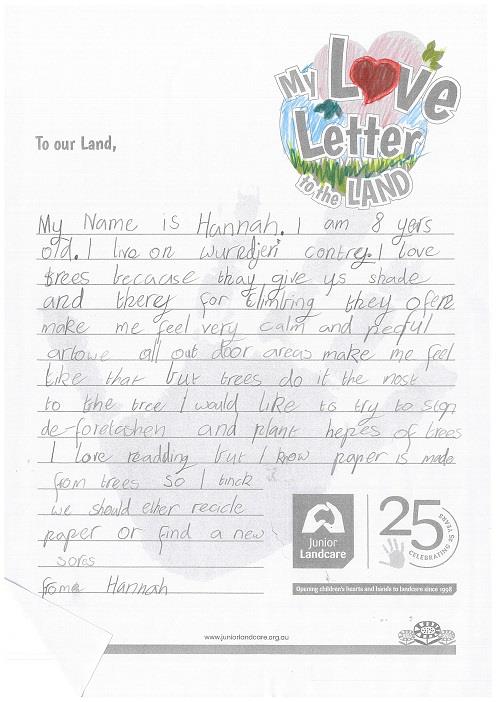 My Love
Letter
to the LAND
To our Land,
My Name is Hannah. I am 8 yers
old. I live on wuredjeri contrey. I love
trees because thay give us shade
and therey for climbing they ofen
make me feel very calm and pecful
artowe all out door areas make me feel
like that but trees do it the most
to the tree I would like to try to stop
de-foretashen and plant hepes of trees
I love readding but I know paper is made
from trees so I think
we should ether recicle
paper or find a new
sores
from Hannah
Junior
Landcare
25
CELEBRATING 25 YEARS
Opening children's hearts and hands to landcare since 1998
www.juniorlandcare.org.au